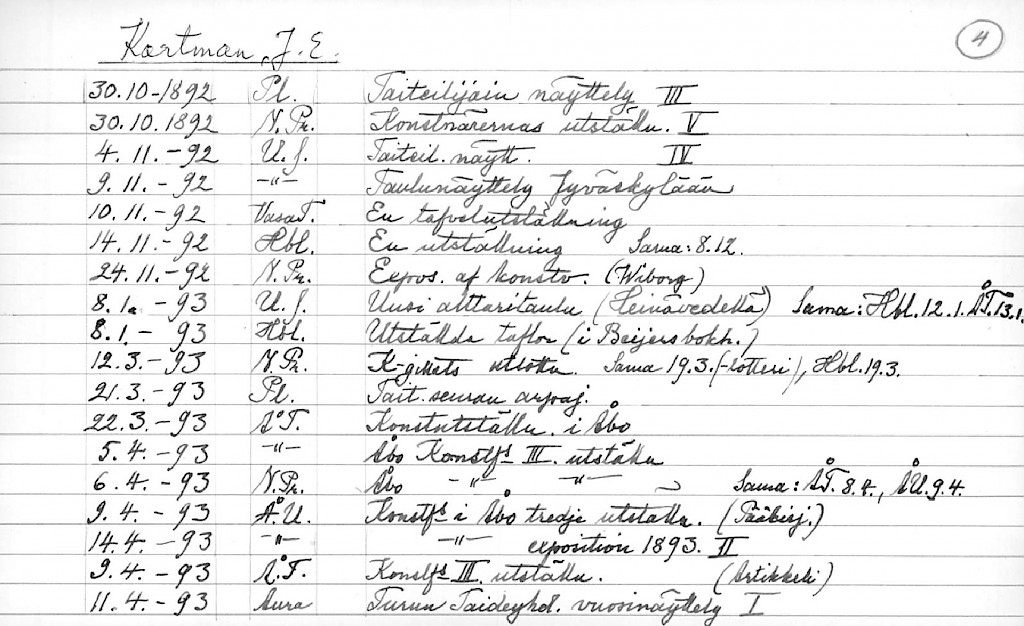 Kortman, J. E. 4
30.10-1892 Pl. Taiteilijain näyttely III
30.10.1892 N.Pr. Konstnärernas utställn. V
4.11.-92 U.S. Taiteil. näytt. IV
9.11.-92 -"- Taulunäyttely Jyväskylään
10.11.-92 VasaT. En tafvelutställning
14.11.-92 Hbl. En utställning Sama: 8.12.
24.11.-92 N.Pr. Expos. af konstv. (Wiborg)
8.1.-93 U.S. Uusi alttaritaulu (Heinävedellä) Sama: Hbl.12.1. ÅT.13.1.
8.1.-93 Hbl. Utställda taflor (i Beijers bokh.)
12.3.-93 N.Pr. Sama 19.3.(-lotteri), Hbl.19.3.
21.3.-93 Pl. Tait. seuran arpaj.
22.3.-93 Å.T. Konstutställn. i Åbo
5.4.-93 -"- Åbo Konstfs III. utställn
6.4.-93 N.Pr. Åbo -"- -"- Sama: ÅT. 8.4., ÅU.9.4.
9.4.-93 Å.U. Konstfs i Åbo tredje utställn. (Pääkirj.)
14.4.-93 -"- -"- exposition 1893. II
9.4.-93 Å.T. Konstfs III. utställn. (Artikkeli)
11.4.-93 Aura Turun Taideyhd. vuosinäyttely I